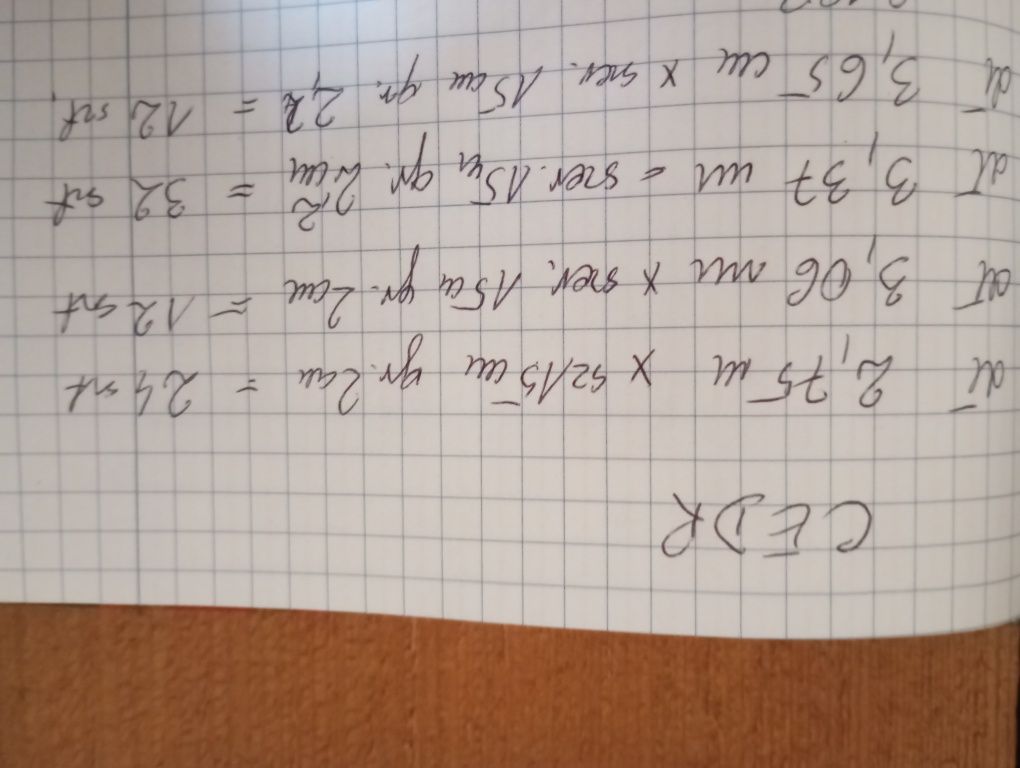 CEDR
dł 2,75 m x sz 15 cm gr. 2 cm = 24 szt
dł 3,06 m x szer. 15 cm gr. 2 cm = 12 szt
dł 3,37 m = szer. 15 cm gr. 2,2 cm = 32 szt
dł 3,65 cm x szer. 15 cm gr. 2,2 = 12 szt.